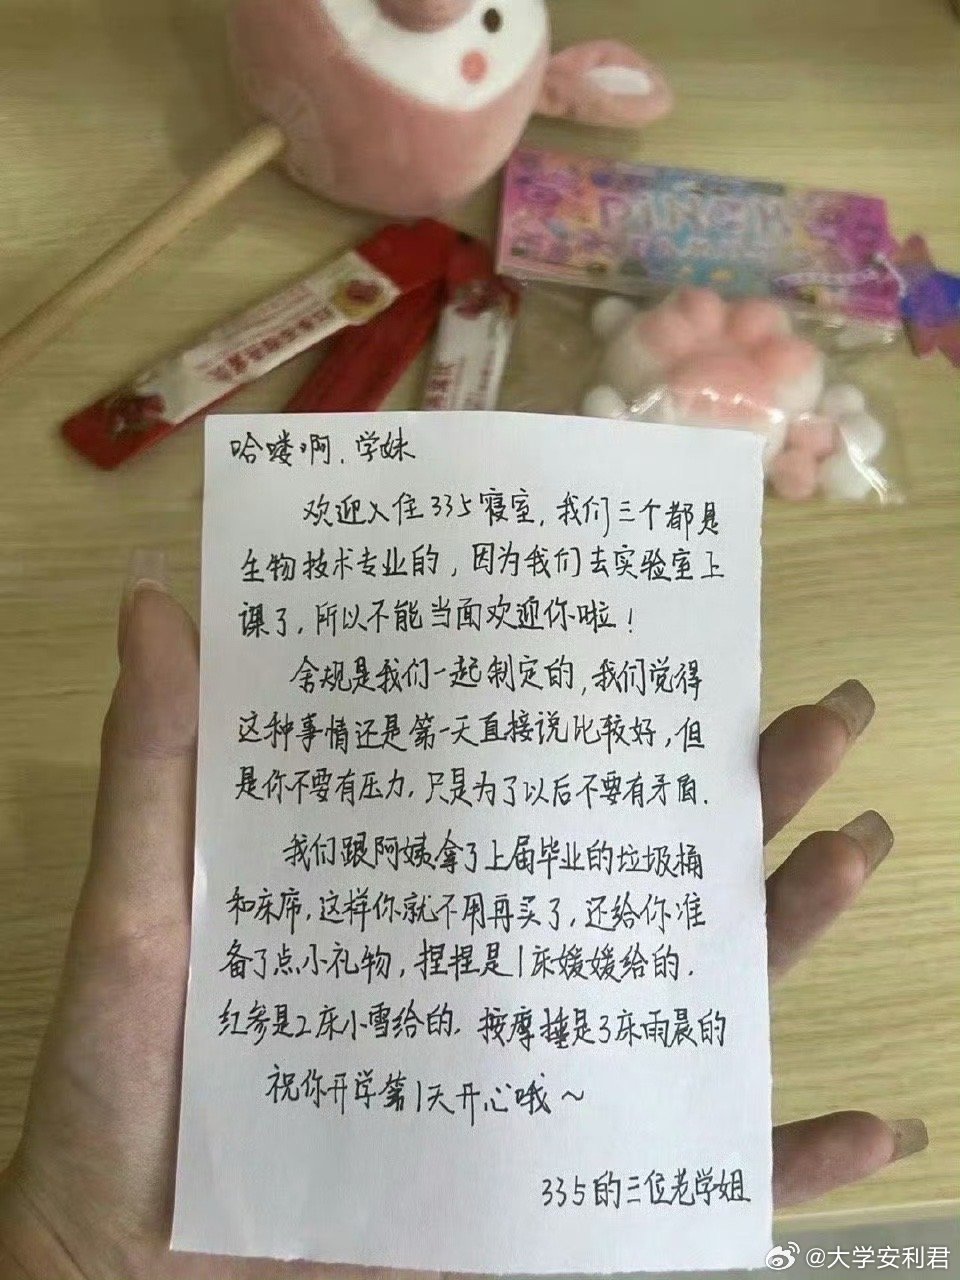 PINCH
哈喽啊，学妹
欢迎入住335寝室，我们三个都是
生物技术专业的，因为我们去实验室上
课了，所以不能当面欢迎你啦！
舍规是我们一起制定的，我们觉得
这种事情还是第一天直接说比较好，但
是你不要有压力，只是为了以后不要有矛盾．
我们跟阿姨拿了上届毕业的垃圾桶
和床席，这样你就不用再买了，还给你准
备了点小礼物，捏捏是1床媛媛给的．
红参是2床小雪给的．按摩捶是3床雨晨的
祝你开学第1天开心哦～
335的三位老学姐
@大学安利君